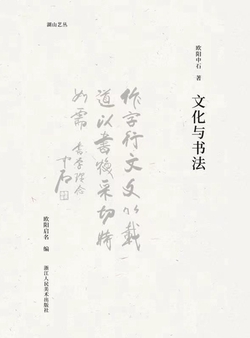 湖山艺丛
欧阳中石 著
文化与书法
作字行文文以載
道以書煥采切時
如需
欧阳启名 编
浙江人民美术出版社